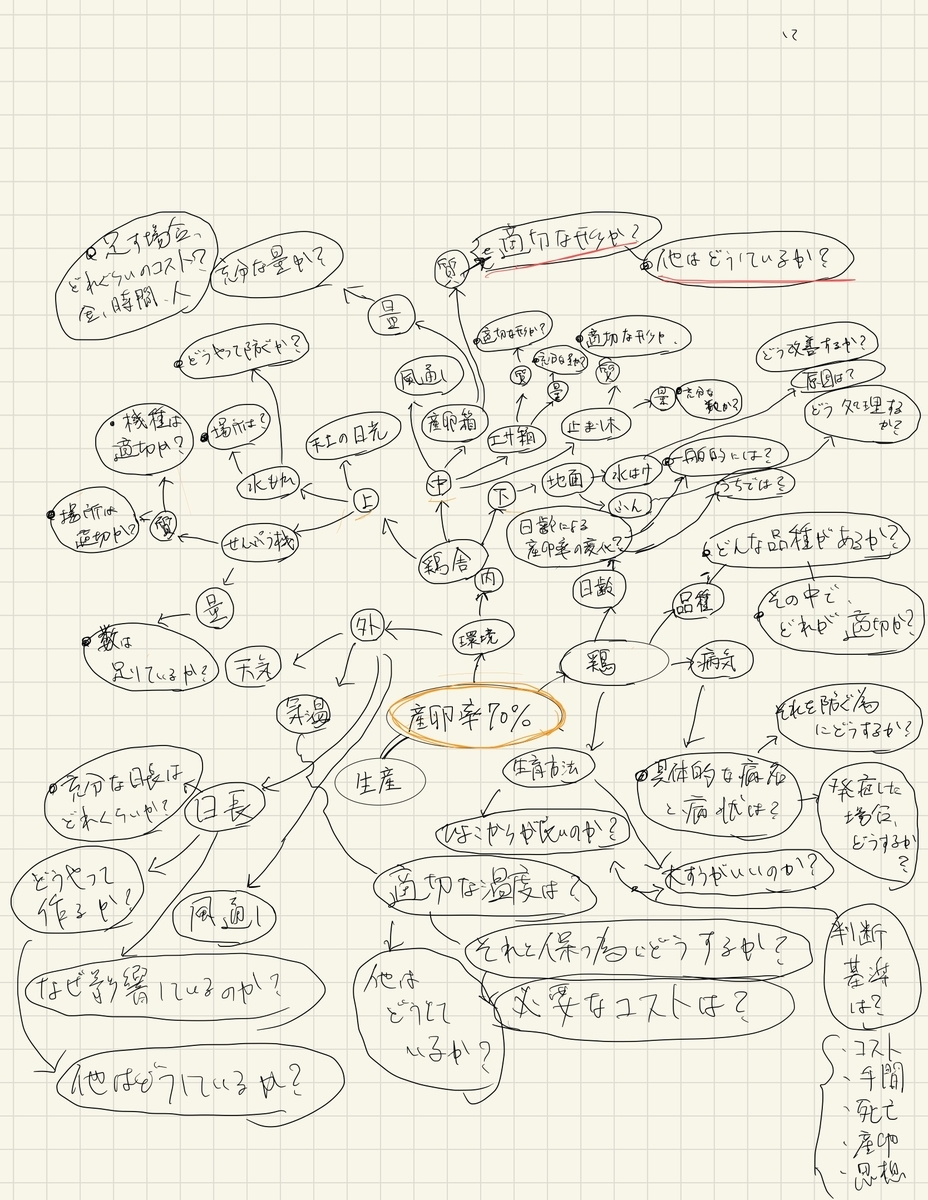 足す場合、
どれぐらいのコスト?
金、時間、人
充分な量か?
量
質
適切な形か?
他はどうしているか?
どうやって防ぐか?
風通し
適切な形か?
質
充分な数か?
量
適切な形か
質
量
充分な
数か?
どう改善するか?
原因は?
どう処理する
か?
・機種は
適切か?
場所は?
天上の日光
産卵箱
エサ箱
止まり木
水もれ
上
中
下
地面
水はけ
ふん
一般的には?
うちでは?
場所は
適切か?
質
せんぷう機
鶏舎
内
日齢による
産卵率の変化?
どんな品種があるか?
日齢
品種
その中で、
どれが適切か?
量
数は
足りているか?
外
環境
天気
鶏
病気
気温
産卵率70%
生産
生育方法
それを防ぐ為
にどうするか?
充分な日長は
どれくらいか?
日長
具体的な病名
と病状は?
発症した
場合、
どうするか
?
ひよこからが良いのか?
大すうがいいのか?
どうやって
作るか?
風通し
適切な温度は?
それを保つ為にどうするか?
判断
基準
は?
なぜ影響しているのか?
他は
どうして
いるか?
必要なコストは?
他はどうしているか?
・コスト
・手間
・死亡
・産卵
・思想